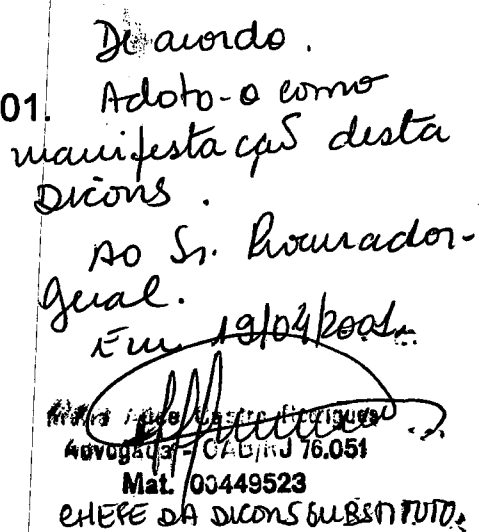 De acordo.
01. Adoto-o como
manifestação desta
Dicons.
Ao Sr. Procurador-
Geral.
Em 19/04/2001.
Castro Rodrigues
Advogada - OAB/RJ 76.051
Mat. 00449523
CHEFE DA DICONS SUBSTITUTO.